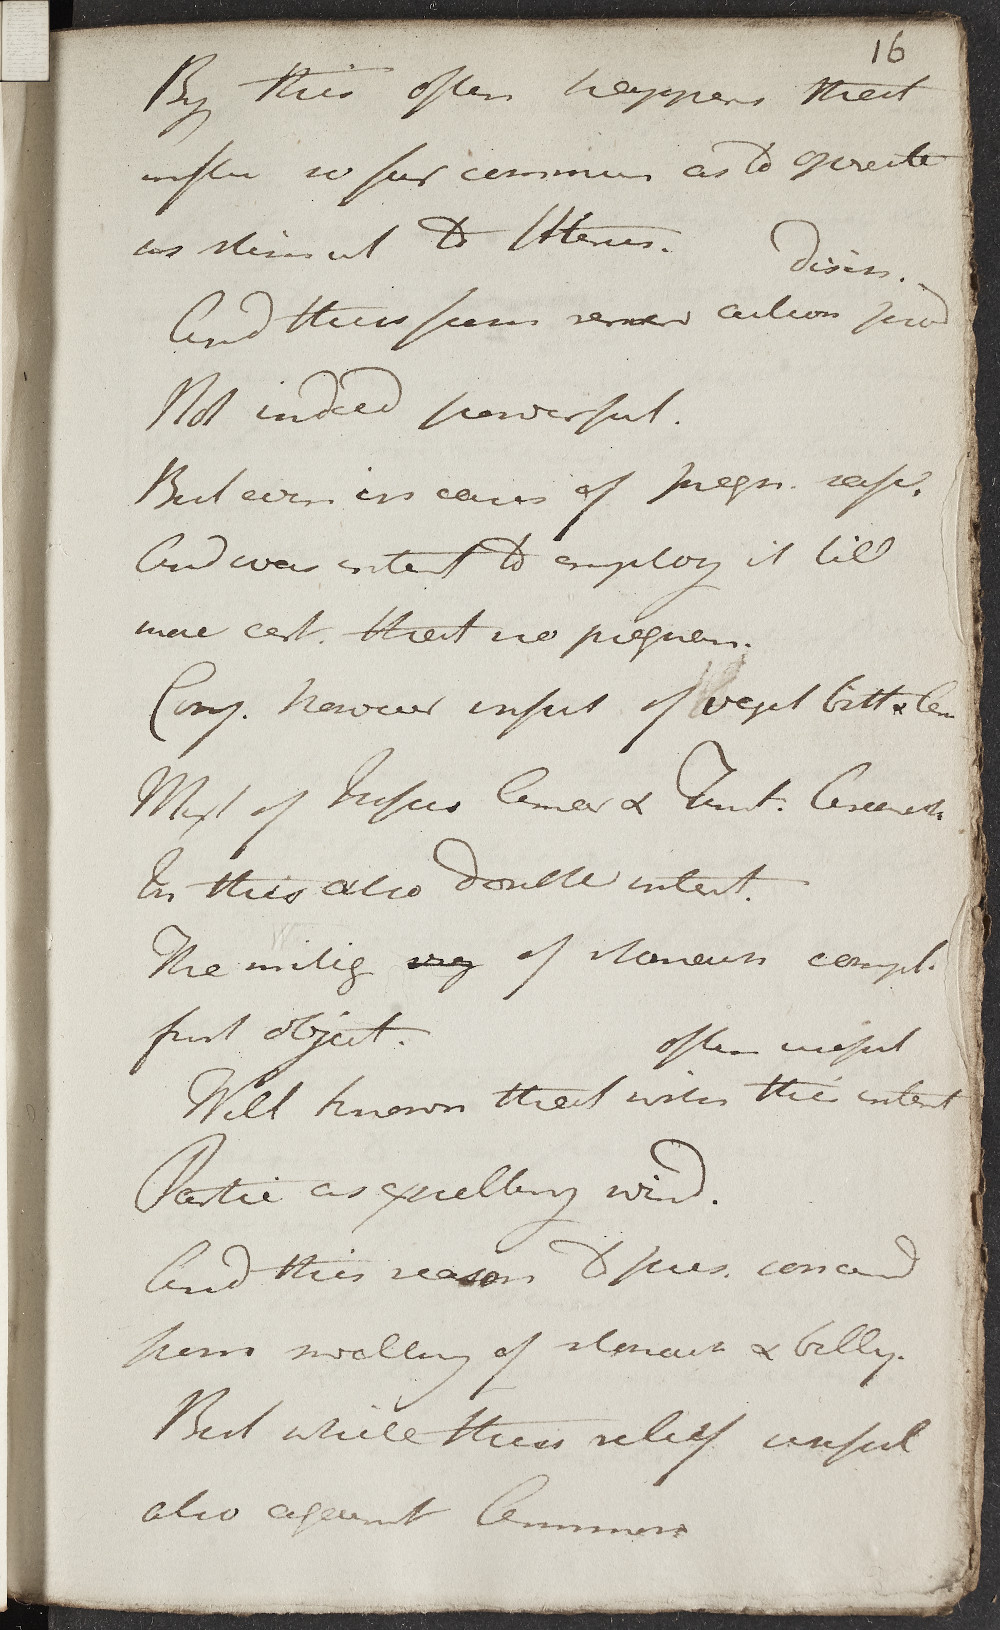 16
By this often happens that
influ so far commun as to operate
as stimul to Uterus.
disin.
And thus from action prod
Not indeed powerful.
But even in cases of pregn. safe.
And was intent to employ it till
more cert. that no pregnan.
Conj. however infus of veget bitt &
Mixt of Infus Amar & Tinct.
In this also double intent.
The mitig of stomach compl.
first object.
often useful
Well known that with this intent
Partic as expelling wind.
And this reason to pres. concand
from swelling of stomach & belly.
But while thus relief useful
also against Common